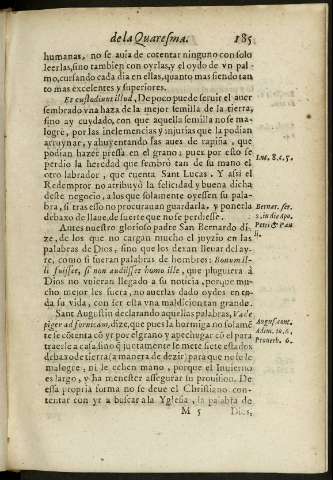 de la Quaresma. 185
humanas, no se auia de cõtentar ninguno con solo
leerlas, sino tambien con oyrlas, y el oydo de vn pal-
mo, cursando cada dia en ellas, quanto mas siendo tan
to mas excelentes y superiores.
Et custodiunt illud, De poco puede seruir el auer
sembrado vna haza de la mejor semilla de la tierra,
sino ay cuydado, con que aquella semilla no se ma-
logre, por las inclemencias y injurias que la podian
arruynar, y ahuyentando las aues de rapiña, que
podian hazer pressa en el grano: pues por esto se
perdio la heredad que sembrò tan de su mano el
otro labrador, que cuenta Sant Lucas. Y assi el
Redemptor no atribuyò la felicidad y buena dicha
deste negocio, a los que solamente oyessen su pala-
bra, si tras esso no procurauan guardarla, y ponerla
debaxo de llaue, de suerte que no se perdiesse.
Luc. 8. c. 5.
Antes nuestro glorioso padre San Bernardo di-
ze, de los que no cargan mucho el juyzio en las
palabras de Dios, sino que los dexan lleuar del ay-
re, como si fueran palabras de hombres: Bonum il-
li fuisset, si non audisset homo ille, que pluguiera à
Dios no vuieran llegado a su noticia, porque mu-
cho mejor les fuera, no auerlas dado oydos en to-
da su vida, con ser esta vna maldicion tan grande.
Bernar. ser.
2. in die Apo.
Petri & Pau
li.
Sant Augustin declarando aquellas palabras, Vade
piger ad formicam, dize, que pues la hormiga no solamẽ
te se cõtenta cõ yr por el grano y apechugar cõ el para
traesele a casa sino q̃ juntamente le mete siete estados
debaxo de tierra (a manera de dezir) para que no se le
malogre, ni le echen mano, porque el Inuierno
es largo, y ha menester assegurar su prouision. De
essa propria forma no se deue el Christiano con-
tentar con yr a buscar a la Yglesia, la palabra de
August. cont.
Prouerb. 6.
M 5 Dios,